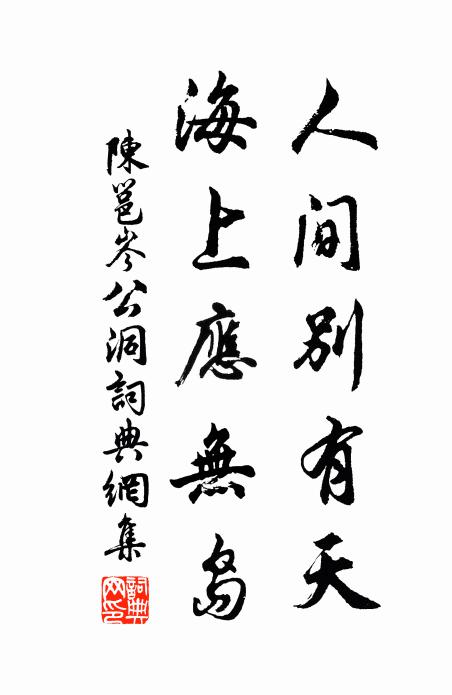 人間別有天
海上應無島
陳邕岑公洞詞典網集
詞典網印